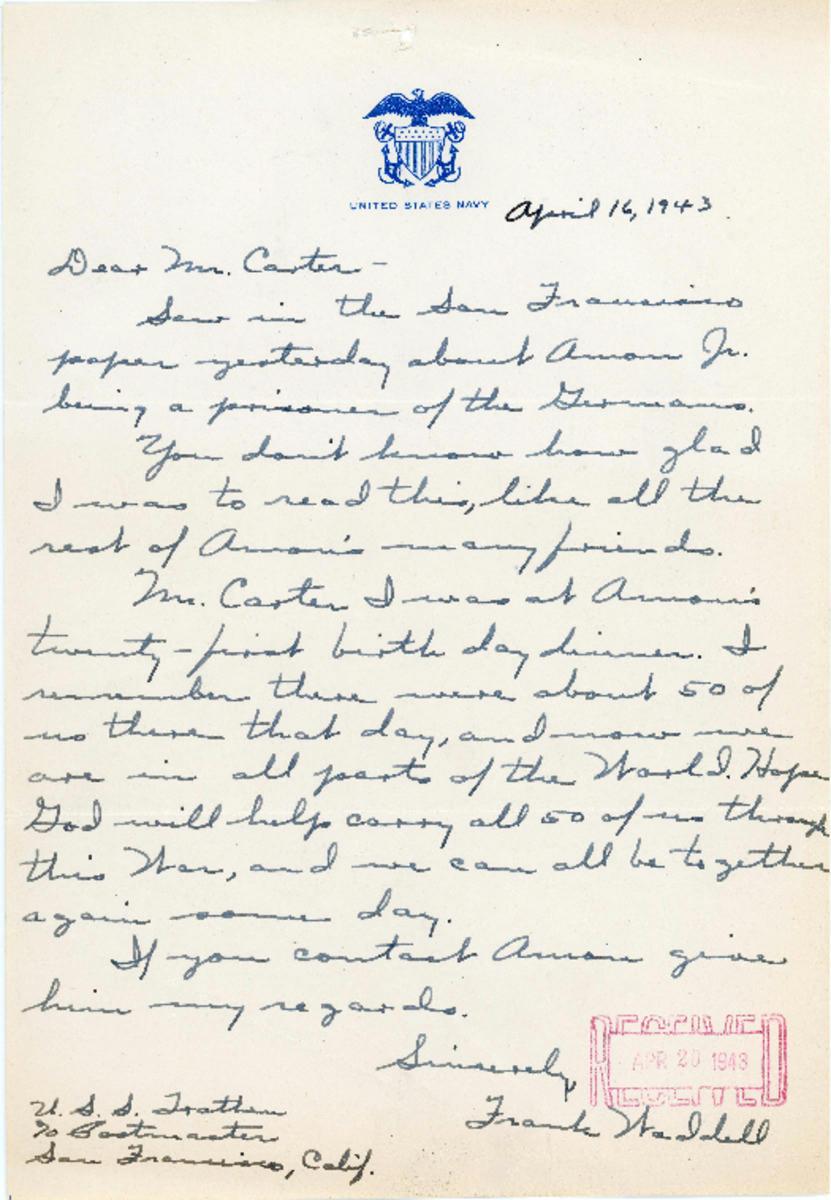 UNITED STATES NAVY
April 16, 1943
Dear Mr. Carter-
Saw in the San Francisco
paper yesterday about Amon Jr.
being a prisoner of the Germans.
You don't know how glad
I was to read this, like all the
rest of Amon's many friends.
Mr. Carter I was at Amon's
twenty-first birth day dinner. I
remember there were about 50 of
us there that day, and now we
are in all parts of the World. Hope
God will help carry all 50 of us through
this War, and we can all be together
again some day.
If you contact Amon give
him my regards.
Sincerely,
Frank Waddell
RECEIVED
APR 20 1943
RECEIVED
U.S.S. Trathen
c/o Postmaster
San Francisco, Calif.